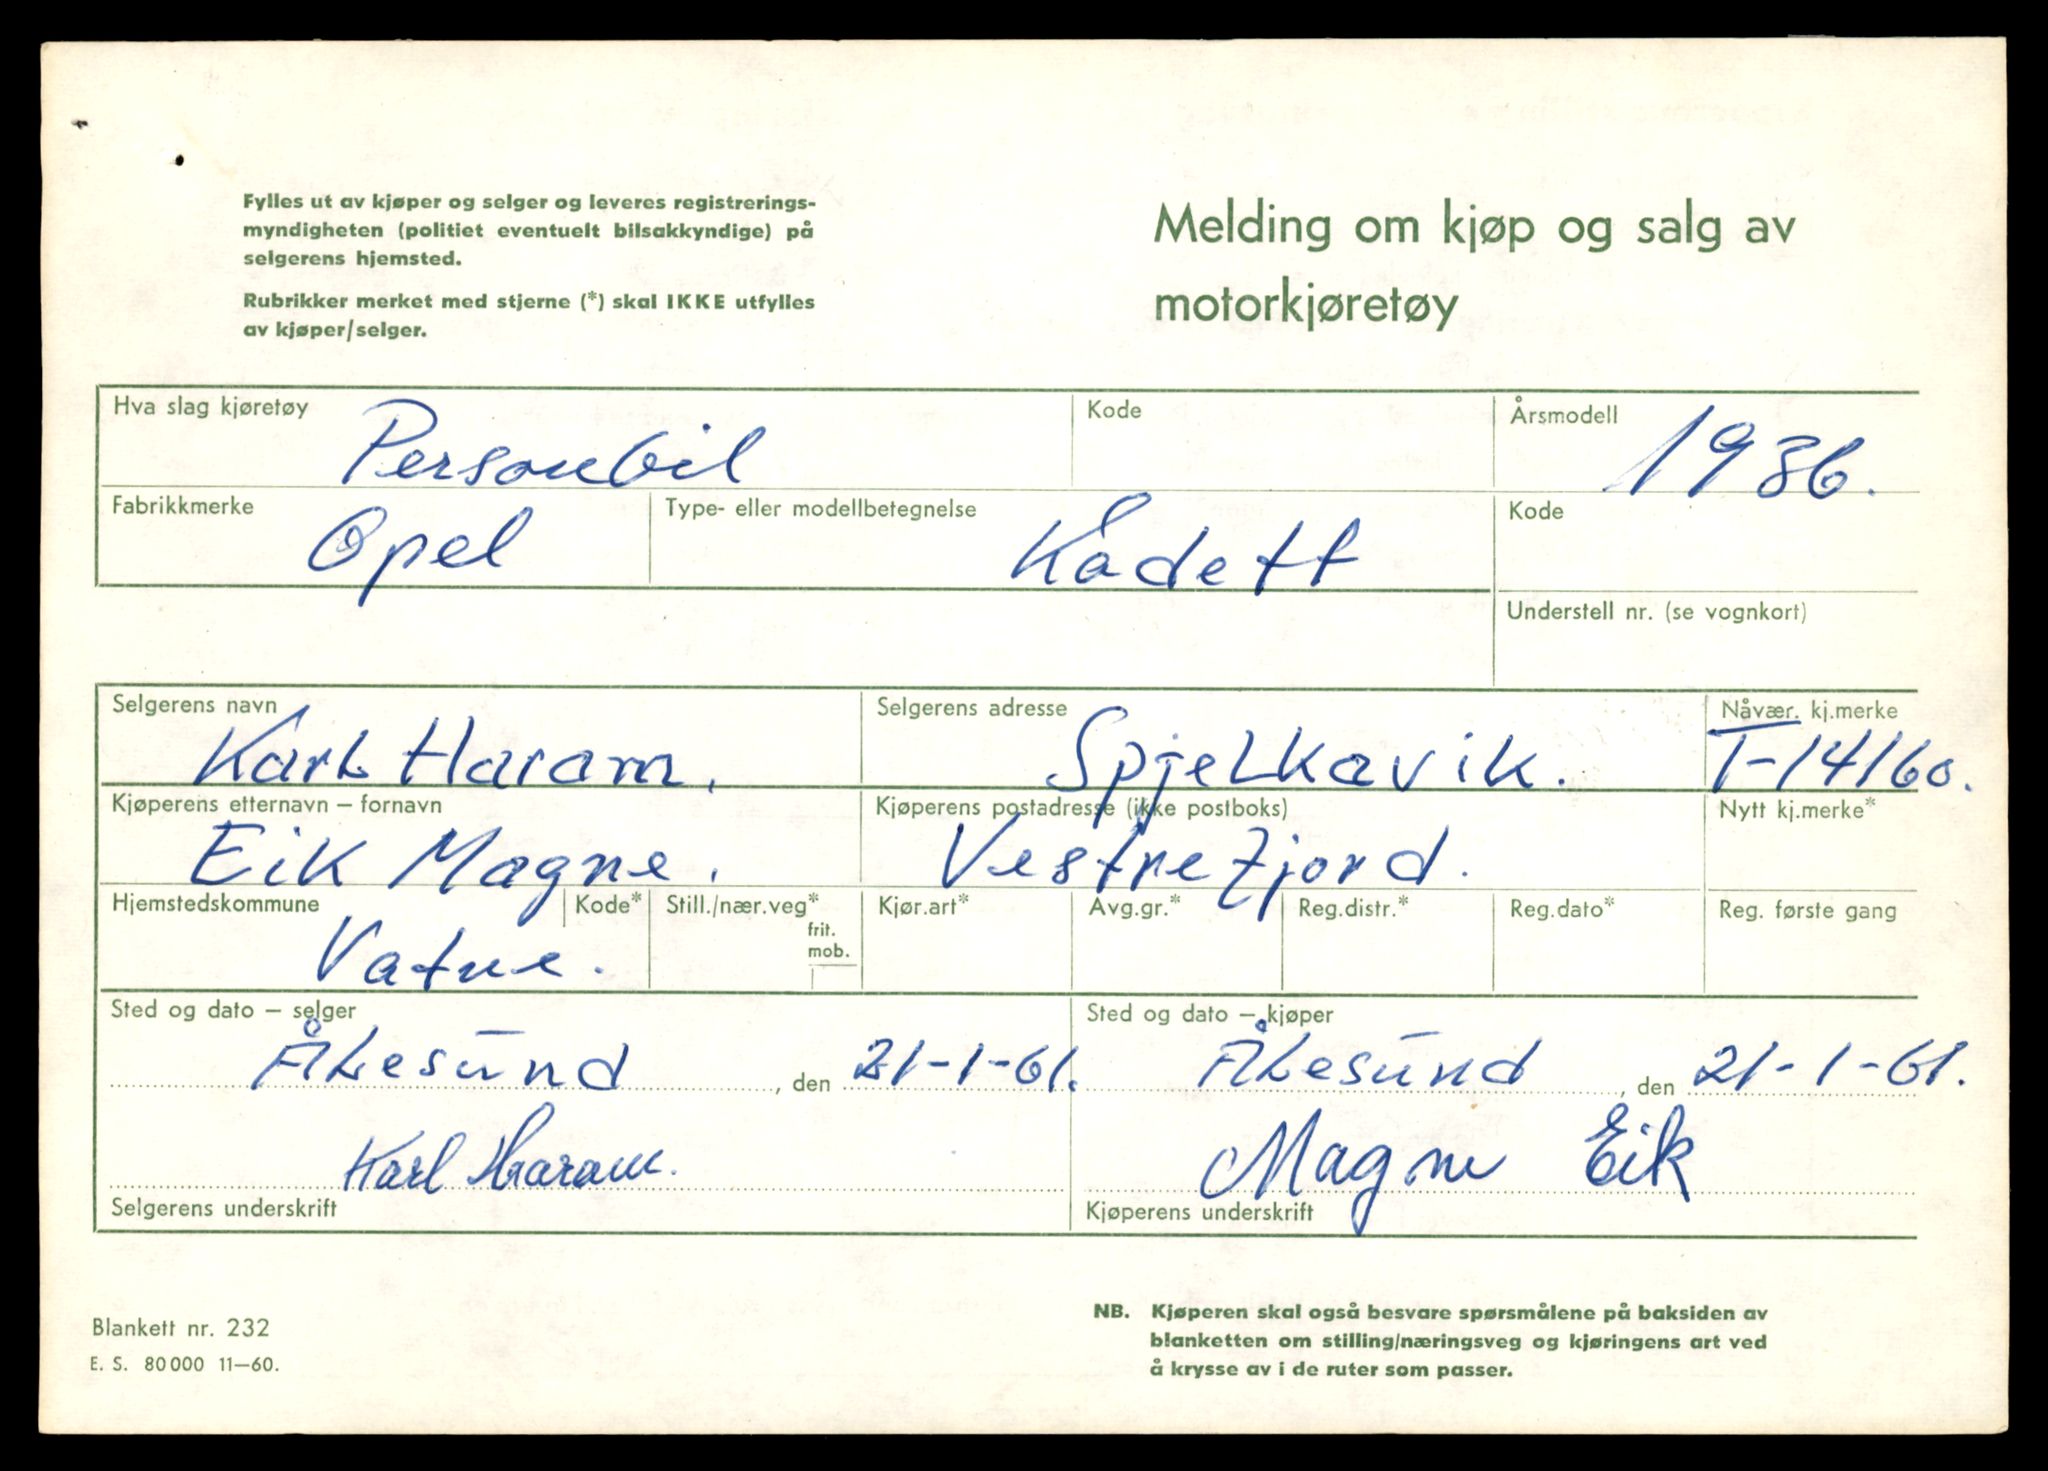 Fylles ut av kjøper og selger og leveres registrerings-
myndigheten (politiet eventuelt bilsakkyndige) på
selgerens hjemsted.
Rubrikker merket med stjerne (*) skal IKKE utfylles
av kjøper/selger.
Melding om kjøp og salg av
motorkjøretøy
Hva slag kjøretøy Kode Årsmodell
Personbil 1936.
Fabrikkmerke Type- eller modellbetegnelse Kode
Opel Kadett
Understell nr. (se vognkort)
Selgerens navn Selgerens adresse Nåvær. kj.merke
Karl Haram. Spjelkavik. T-14160.
Kjøperens etternavn – fornavn Kjøperens postadresse (ikke postboks) Nytt kj.merke*
Eik Magne. Vestrefjord.
Hjemstedskommune Kode* Still./nær.veg* Kjør.art* Avg.gr.* Reg.distr.* Reg.dato* Reg. første gang
frit.
mob.
Vatne.
Sted og dato – selger Sted og dato – kjøper
Ålesund, den 21-1-61. Ålesund, den 21-1-61.
Karl Haram. Magne Eik
Selgerens underskrift Kjøperens underskrift
Blankett nr. 232
E. S. 80000 11–60.
NB. Kjøperen skal også besvare spørsmålene på baksiden av
blanketten om stilling/næringsveg og kjøringens art ved
å krysse av i de ruter som passer.